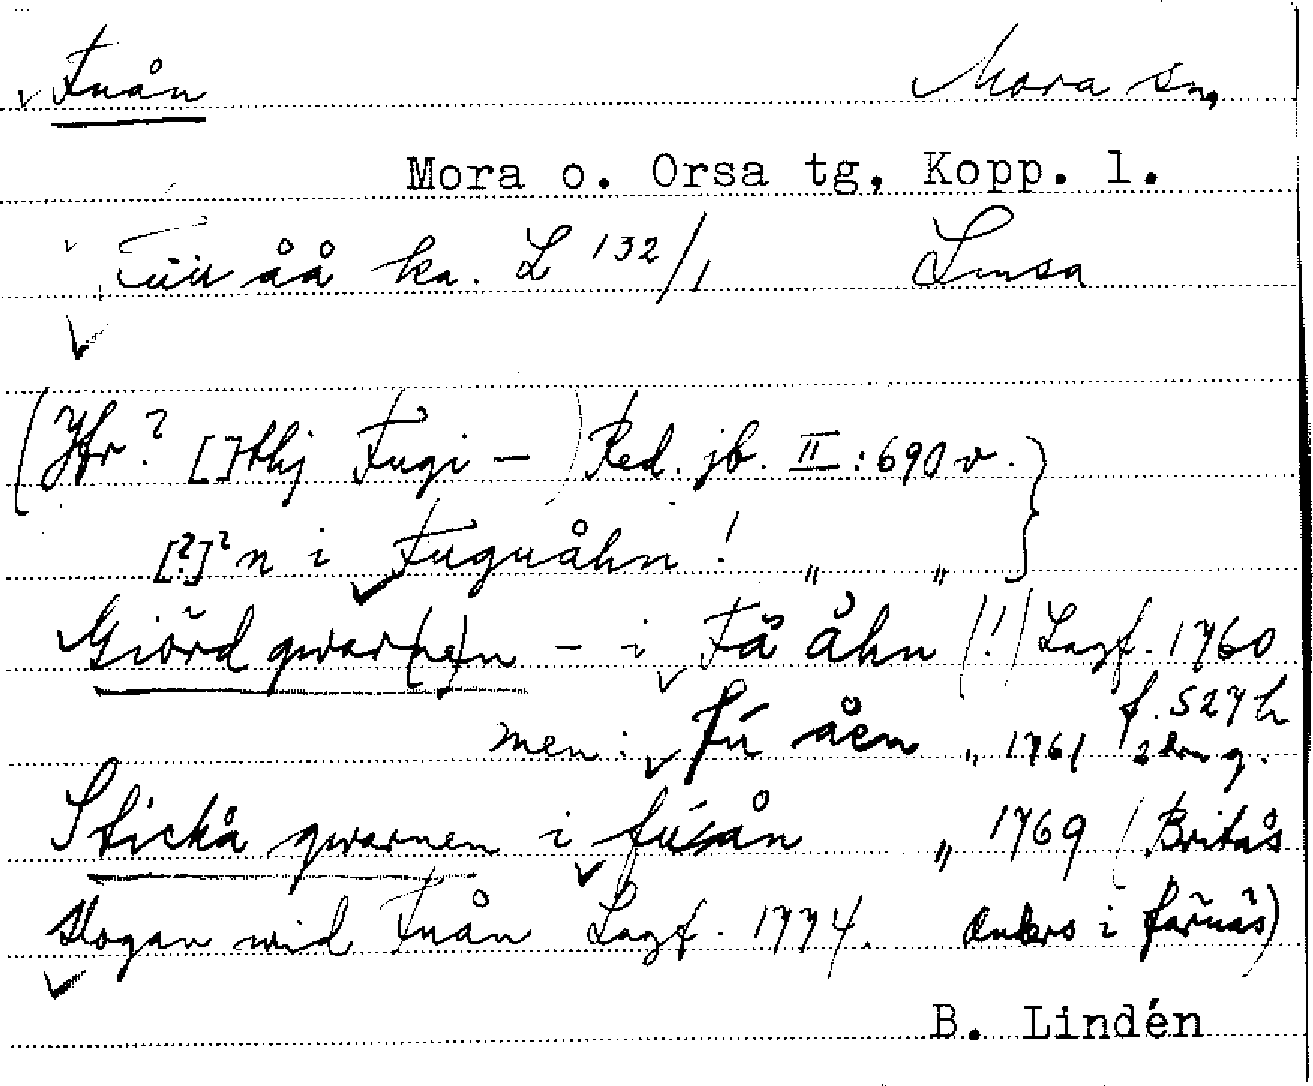 Fuån Mora sn,
Mora o. Orsa tg, Kopp. l.
åå ka. L 132/1
(Jfr? Fugi – ) Red. jb. II : 690 v.
[?]? n i Fuguåhn ! " "
Giörd qwar(ne)n – i Få åhn (!) Lagf. 1760
men : Fú åen " 1761 f. 527 h
Stickå qwarnen i fúsån " 1769 (Britås
skogan wid Fuån Lagf. 1774. Anders i färnäs)
B. Lindén